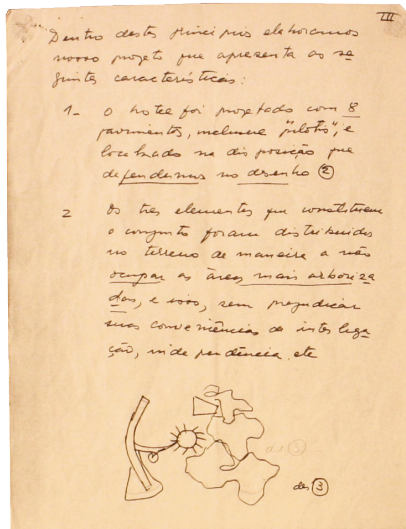 III
Dentro destes principios elaboramos
nosso projeto que apresenta as se
guintes características:
1- O hotel foi projetado com 8
pavimentos, inclusive "pilotis", e
localisado na disposição que
defendemos no desenho 2
2 Os tres elementos que constituem
o conjunto foram distribuidos
no terreno de maneira a não
ocupar as áreas mais arboriza
das, e isso, sem prejudicar
suas conveniências de interliga
ção, independência etc
des 3
des 3